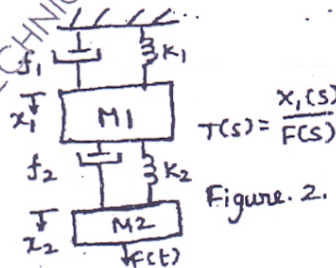 TECHNIC
f1
K1
x1
M1
T(s) = x1(s)
F(s)
f2
K2
Figure. 2.
x2
M2
F(t)